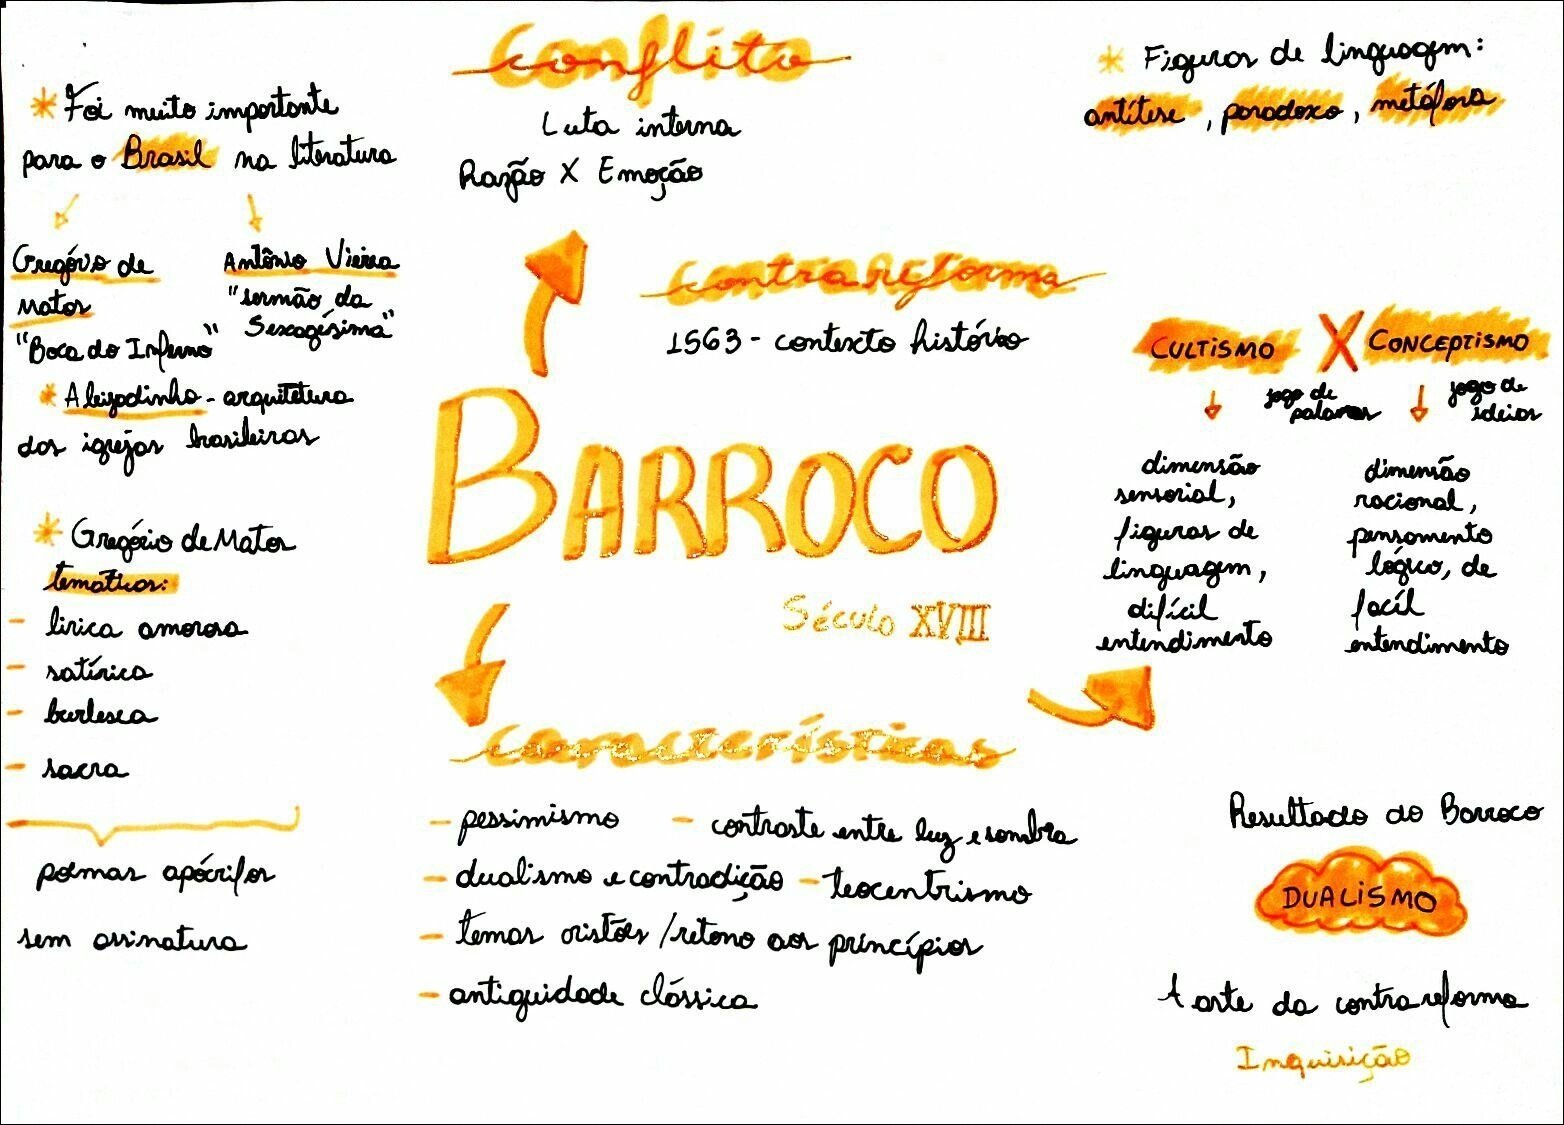 Conflito
Luta interna
Razão X Emoção
* Foi muito importante
para o Brasil na literatura
Gregório de
Matos
"Boca do Inferno"
Antônio Vieira
"sermão da
Sexagésima"
* Aleijadinho - arquitetura
das igrejas brasileiras
* Gregório de Matos
temáticas:
- lírica amorosa
- satírica
- burlesca
- sacra
poemas apócrifos
sem assinatura
contrareforma
1563 - contexto histórico
BARROCO
Século XVIII
características
- pessimismo - contraste entre luz e sombra
- dualismo e contradição - teocentrismo
- temas cristões / retono aos princípios
- antiguidade clássica
* Figuras de linguagem:
antítese, paradoxo, metáfora
CULTISMO X CONCEPTISMO
jogo de
palavras
jogo de
ideias
dimensão
sensorial,
figuras de
linguagem,
difícil
entendimento
dimensão
racional,
pensamento
lógico, de
facíl
entendimento
Resultado do Barroco
DUALISMO
A arte da contrareforma
Inquisição